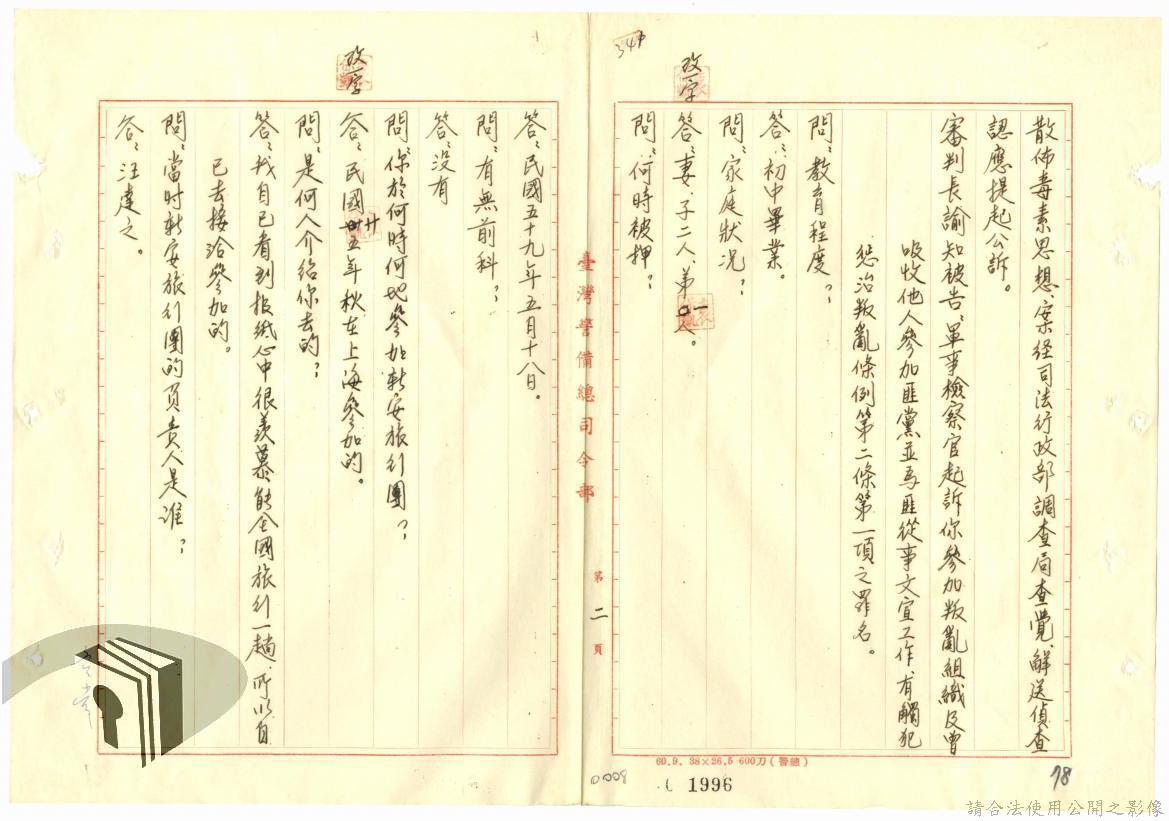 散佈毒素思想、案経司法行政部調查局查覺、解送偵查
認應提起公訴。
審判長諭知被告：軍事檢察官起訴你參加叛亂組織及曾
吸收他人參加匪黨並為匪從事文宣工作、有觸犯
懲治叛亂條例第二條第一項之罪名。
問：教育程度？
答：初中畢業。
問：家庭狀况？
答：妻、子二人、弟一人。
問：何時被押？
臺灣警備總司令部
第二頁
答：民國五十九年五月十八日。
問：有無前科？
答：没有
問：你於何時何地參加新安旅行團？
答：民國廿五年秋在上海參加的。
問：是何人介紹你去的？
答：我自己看到报紙心中很羡慕能全國旅行一趟、所以自
己去接洽參加的。
問：當时新安旅行團的負责人是谁？
答：汪達之。
改一字
改一字
341
60.9. 38×26.5 600刀(警總)
0008
1996
78
請合法使用公開之影像